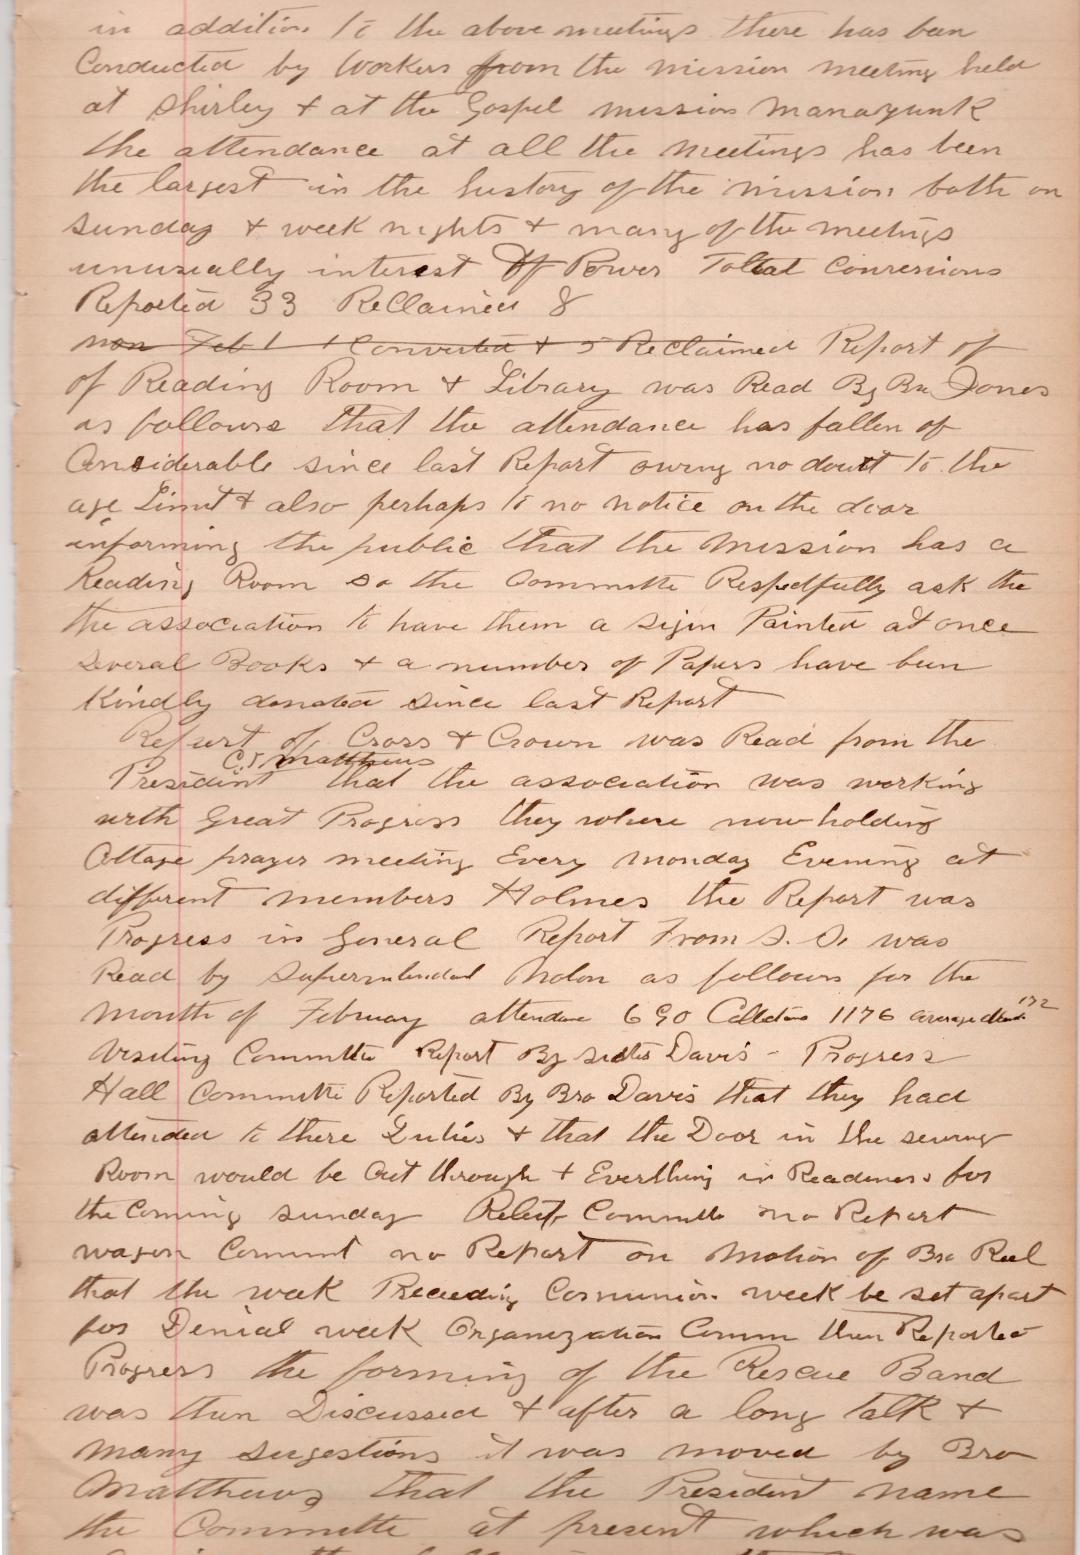 in addition to the above meetings there has ben
Conducted by Workers from the mission meeting held
at Shirley & at the Gospel mission Manayunk
the attendance at all the meetings has been
the largest in the history of the mission both on
sunday & week nights & many of the meetings
unusially interest of Power Toltal Conversions
Reported 33 ReClaimed 8
Feb 1 1 Converted & 5 ReClaimed Report of
of Reading Room & Library was Read By Bro Jones
as follows that the attendance has fallen of
Considerable since last Report owing no doutt to the
age Limit & also perhaps to no notice on the door
informing the public that the mission has a
Reading Room so the Committe Respedfully ask the
the association to have them a sign Painted at once
several Books & a number of Papers have been
Kindly donated since last Report
Report of Cross & Crown was Read from the
C.J. Matthews
President that the association was working
with Great Progress they where now holding
Cottage prayer meeting Every monday Evening at
different members Holmes the Report was
Progress in General Report From S. S. was
Read by Superintendant as follows for the
month of February attendance 690 Collections 1176 average attend 172
Visiting Committe Report By sister Davis - Progress
Hall Committe Reported By Bro Davis that they had
attended to there Duties & that the Door in the sewing
Room would be Cut through & Everthing in Readiness for
the Coming sunday Relief Committe no Report
wagon Commt no Report on Motion of Bro Reel
that the week Preceeding Comunion week be set apart
for Denial week Organization Comm then Reported
Progress the forming of the Rescue Band
was then Discussed & after a long talk &
many sugestions it was moved by Bro
Matthews that the President name
the Committe at present which was